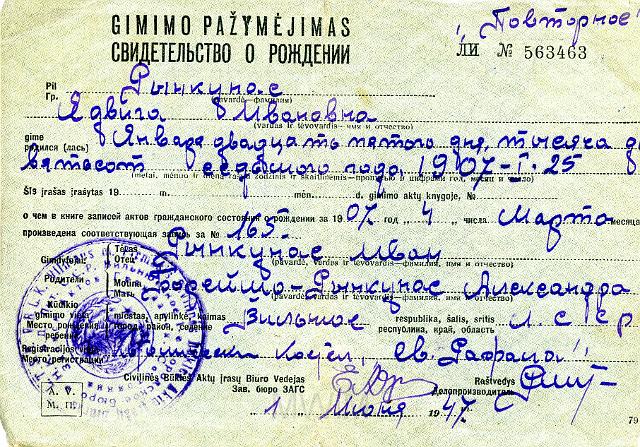 "Повторное"
GIMIMO PAŽYMĖJIMAS
СВИДЕТЕЛЬСТВО О РОЖДЕНИИ
ЛИ № 563463
Pil.
Гр. Рынкунас
(pavardė—фамилия)
Ядвига Ивановна
(vardas ir tėvovardis—имя и отчество)
gimė
родился (лась) Января двадцать пятого дня, тысяча де
вятьсот седьмого года, 1907-I-25
(metai, mėnuo ir diena žodžiais ir skaitmenimis—прописью и цифрами год, месяц и число)
Šis įrašas įrašytas 19 m. mėn. d. gimimo aktų knygoje, №
о чем в книге записей актов гражданского состояния о рождении за 1907 год 4 числа Марта месяца
произведена соответствующая запись за № 165.
Gimdytojai: Tėvas
Родители: Отец Рынкунас Иван
(pavardė, vardas ir tėvovardis—фамилия, имя и отчество)
Motina
Мать Рынкунас Александра
(pavardė, vardas ir tėvovardis—фамилия, имя и отчество)
Kūdikio
gimimo vieta miestas, apylinkė, kaimas
Место рождения город, район, селение Вильнюс
respublika, šalis, sritis
республика, край, область Л.С.С.Р.
ребенка
Registracijos vieta
Место регистрации Костел, Св. Рафала
Civilinės Būklės Aktų Įrašų Biuro Vedėjas
Зав. бюро ЗАГС
Raštvedys
Делопроизводитель
A. V.
М. П.
1 Июня 1947
79